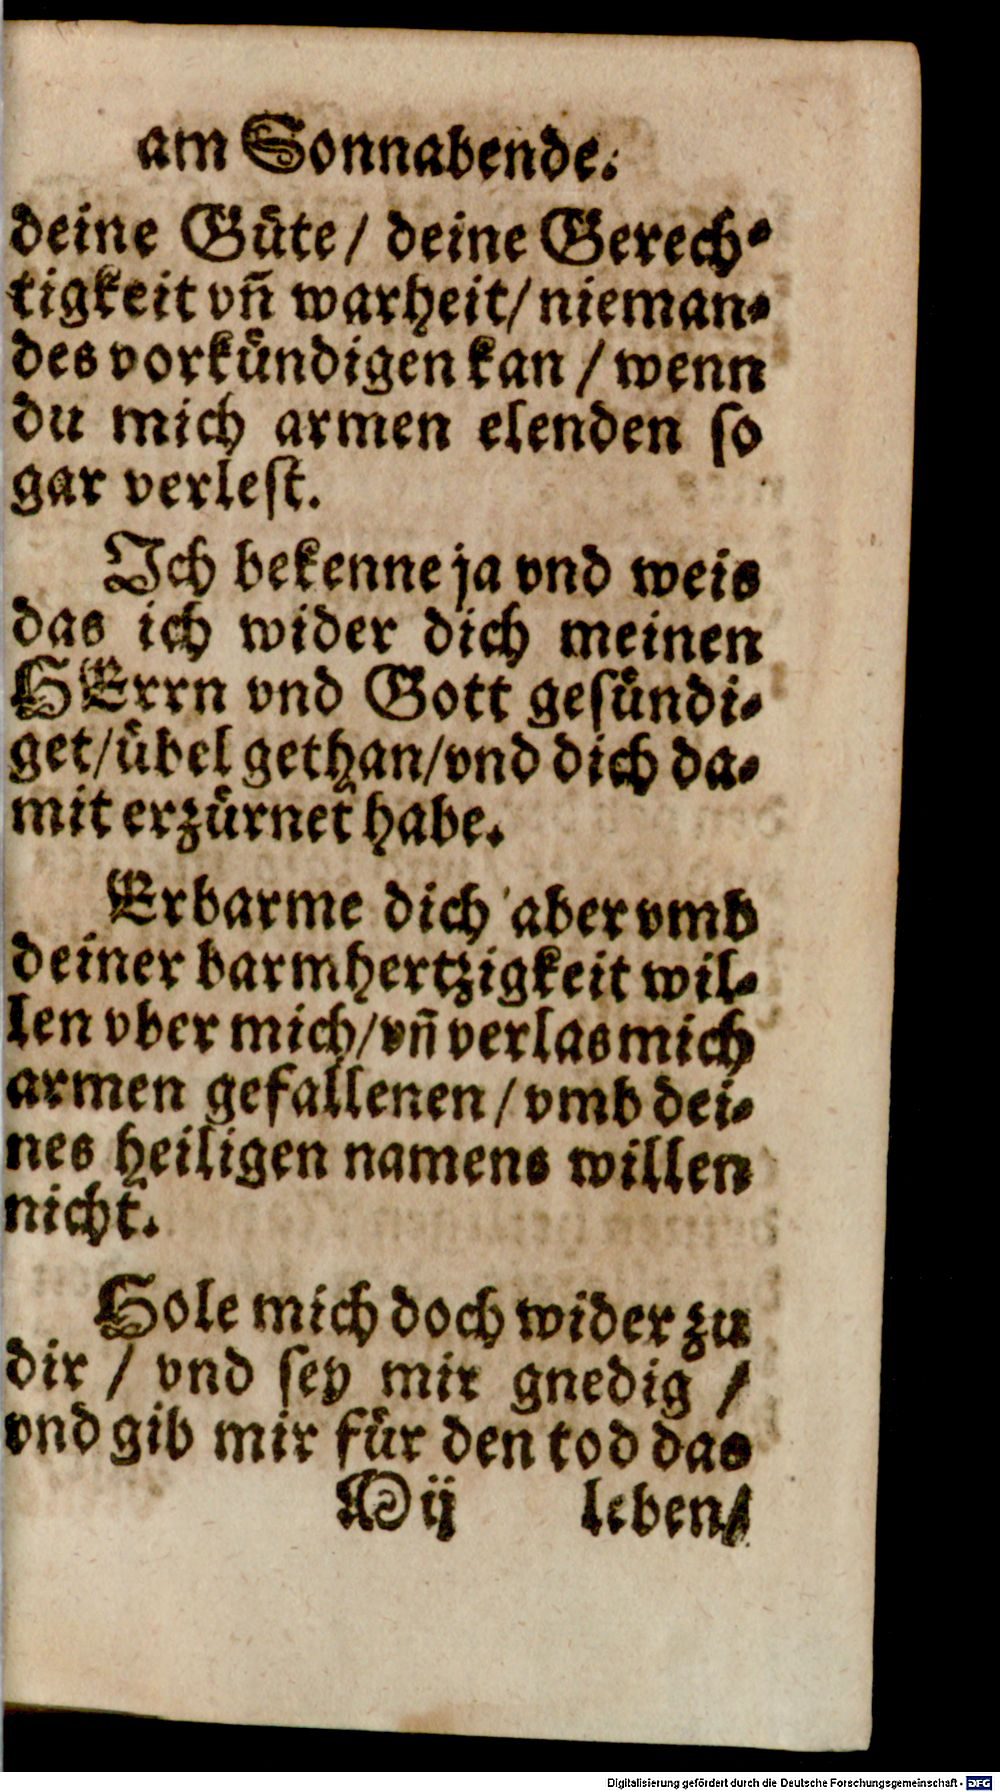 am Sonnabende.
deine Güte / deine Gerech-
tigkeit vñ warheit / nieman-
des vorkündigen kan / wenn
du mich armen elenden so
gar verlest.
Ich bekenne ja vnd weis
das ich wider dich meinen
HErrn vnd Gott gesündi-
get / übel gethan / vnd dich da-
mit erzürnet habe.
Erbarme dich aber vmb
deiner barmhertzigkeit wil-
len vber mich / vñ verlas mich
armen gefallenen / vmb dei-
nes heiligen namens willen
nicht.
Hole mich doch wider zu
dir / vnd sey mir gnedig /
vnd gib mir für den tod das
ij leben /
Digitalisierung gefördert durch die Deutsche Forschungsgemeinschaft - DFG